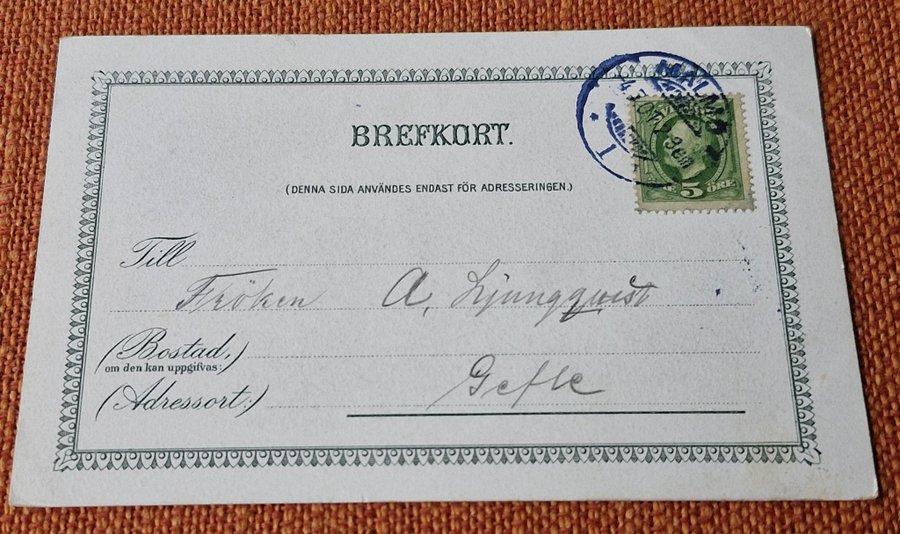 MALMÖ
1
BREFKORT.
5 ÖRE
(DENNA SIDA ANVÄNDES ENDAST FÖR ADRESSERINGEN.)
Till
Fröken A. Ljungqwist
(Bostad,)
om den kan uppgifvas:
Gefle
(Adressort:)